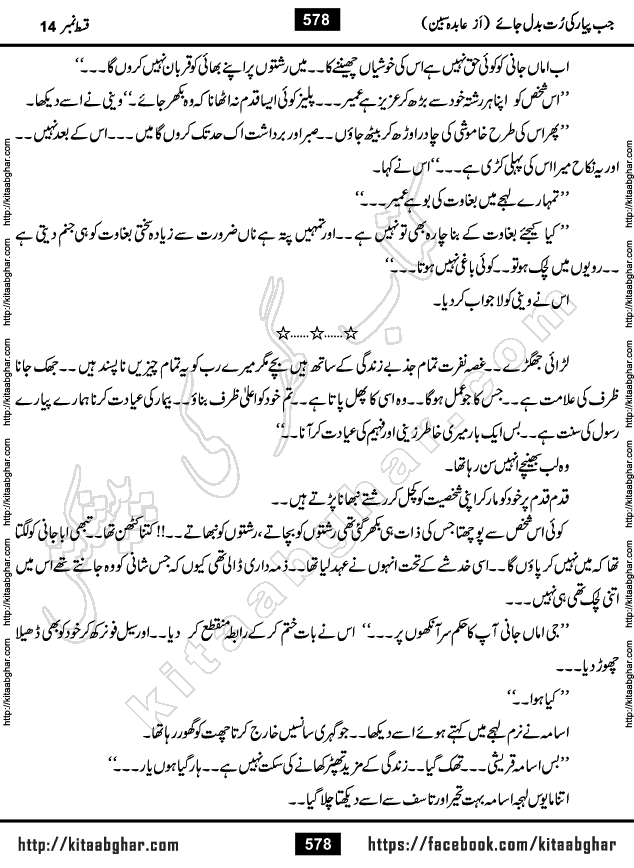 جب پیار کی رُت بدل جائے (از عابدہ سبین) 578 قسط نمبر 14
اب اماں جانی کو کوئی حق نہیں ہے اس کی خوشیاں چھیننے کا۔۔۔ میں رشتوں پر اپنے بھائی کو قربان نہیں کروں گا۔۔۔‘‘
’’اس شخص کو اپنا ہر رشتہ خود سے بڑھ کر عزیز ہے عمیر۔۔۔ پلیز کوئی ایسا قدم نہ اٹھانا کہ وہ بکھر جائے۔‘‘ وینی نے اسے دیکھا۔
’’پھر اس کی طرح خاموشی کی چادر اوڑھ کر بیٹھ جاؤں۔۔ صبر اور برداشت اک حد تک کروں گا میں۔۔۔ اس کے بعد نہیں۔۔
اور یہ نکاح میرا اس کی پہلی کڑی ہے۔۔۔‘‘ اس نے کہا۔
’’تمہارے لہجے میں بغاوت کی بو ہے عمیر۔۔۔‘‘
’’کیا کیجئے بغاوت کے بنا چارہ بھی تو نہیں ہے۔۔ اور تمہیں پتہ ہے ناں ضرورت سے زیادہ سختی بغاوت کو ہی جنم دیتی ہے
۔۔ رویوں میں لچک ہو تو۔۔ کوئی باغی نہیں ہوتا۔۔۔‘‘
اس نے وینی کو لاجواب کر دیا۔
☆......☆......☆
لڑائی جھگڑے۔۔ غصہ نفرت تمام جذبے زندگی کے ساتھ ہیں بچے مگر میرے رب کو یہ تمام چیزیں ناپسند ہیں۔۔ جھک جانا
ظرف کی علامت ہے۔۔ جس کا جو عمل ہوگا۔۔ وہ اسی کا پھل پاتا ہے۔۔ تم خود کو اعلیٰ ظرف بناؤ۔۔ بیمار کی عیادت کرنا ہمارے پیارے
رسول کی سنت ہے۔۔ بس ایک بار میری خاطر زینی اور فہیم کی عیادت کر آنا۔۔‘‘
وہ لب بھینچے انہیں سن رہا تھا۔
قدم قدم پر خود کو مار کر اپنی شخصیت کو کچل کر رشتے نبھانا پڑتے ہیں۔۔
کوئی اس شخص سے پوچھتا جس کی ذات ہی بکھر گئی تھی رشتوں کو بچاتے، رشتوں کو نبھاتے۔۔!! کتنا کٹھن تھا۔۔ تبھی ابا جانی کو لگتا
تھا کہ میں نہیں کر پاؤں گا۔۔ اسی خدشے کے تحت انہوں نے عہد لیا تھا۔۔ ذمہ داری ڈالی تھی کیوں کہ جس شانی کو وہ جانتے تھے اس میں
اتنی لچک تھی ہی نہیں۔۔۔
’’جی اماں جانی آپ کا حکم سر آنکھوں پر۔۔۔‘‘ اس نے بات ختم کر کے رابطہ منقطع کر دیا۔۔ اور سیل فون رکھ کر خود کو بھی ڈھیلا
چھوڑ دیا۔۔۔
’’کیا ہوا۔۔‘‘
اسامہ نے نرم لہجے میں کہتے ہوئے اسے دیکھا۔۔ جو گہری سانسیں خارج کرتا چھت کو گھور رہا تھا۔
’’بس اسامہ قریشی۔۔۔ تھک گیا۔۔ زندگی کے مزید تھپڑ کھانے کی سکت نہیں ہے۔۔ ہار گیا ہوں یار۔۔۔‘‘
اتنا مایوس لہجہ اسامہ بہت تحیر اور تاسف سے اسے دیکھتا چلا گیا۔۔
http://kitaabghar.com 578 https://facebook.com/kitaabghar
http://kitaabghar.com http://kitaabghar.com http://kitaabghar.com http://kitaabghar.com http://kitaabghar.com http://kitaabghar.com
http://kitaabghar.com http://kitaabghar.com http://kitaabghar.com http://kitaabghar.com http://kitaabghar.com http://kitaabghar.com
کتاب گھر کی پیشکش
kitaabghar.com